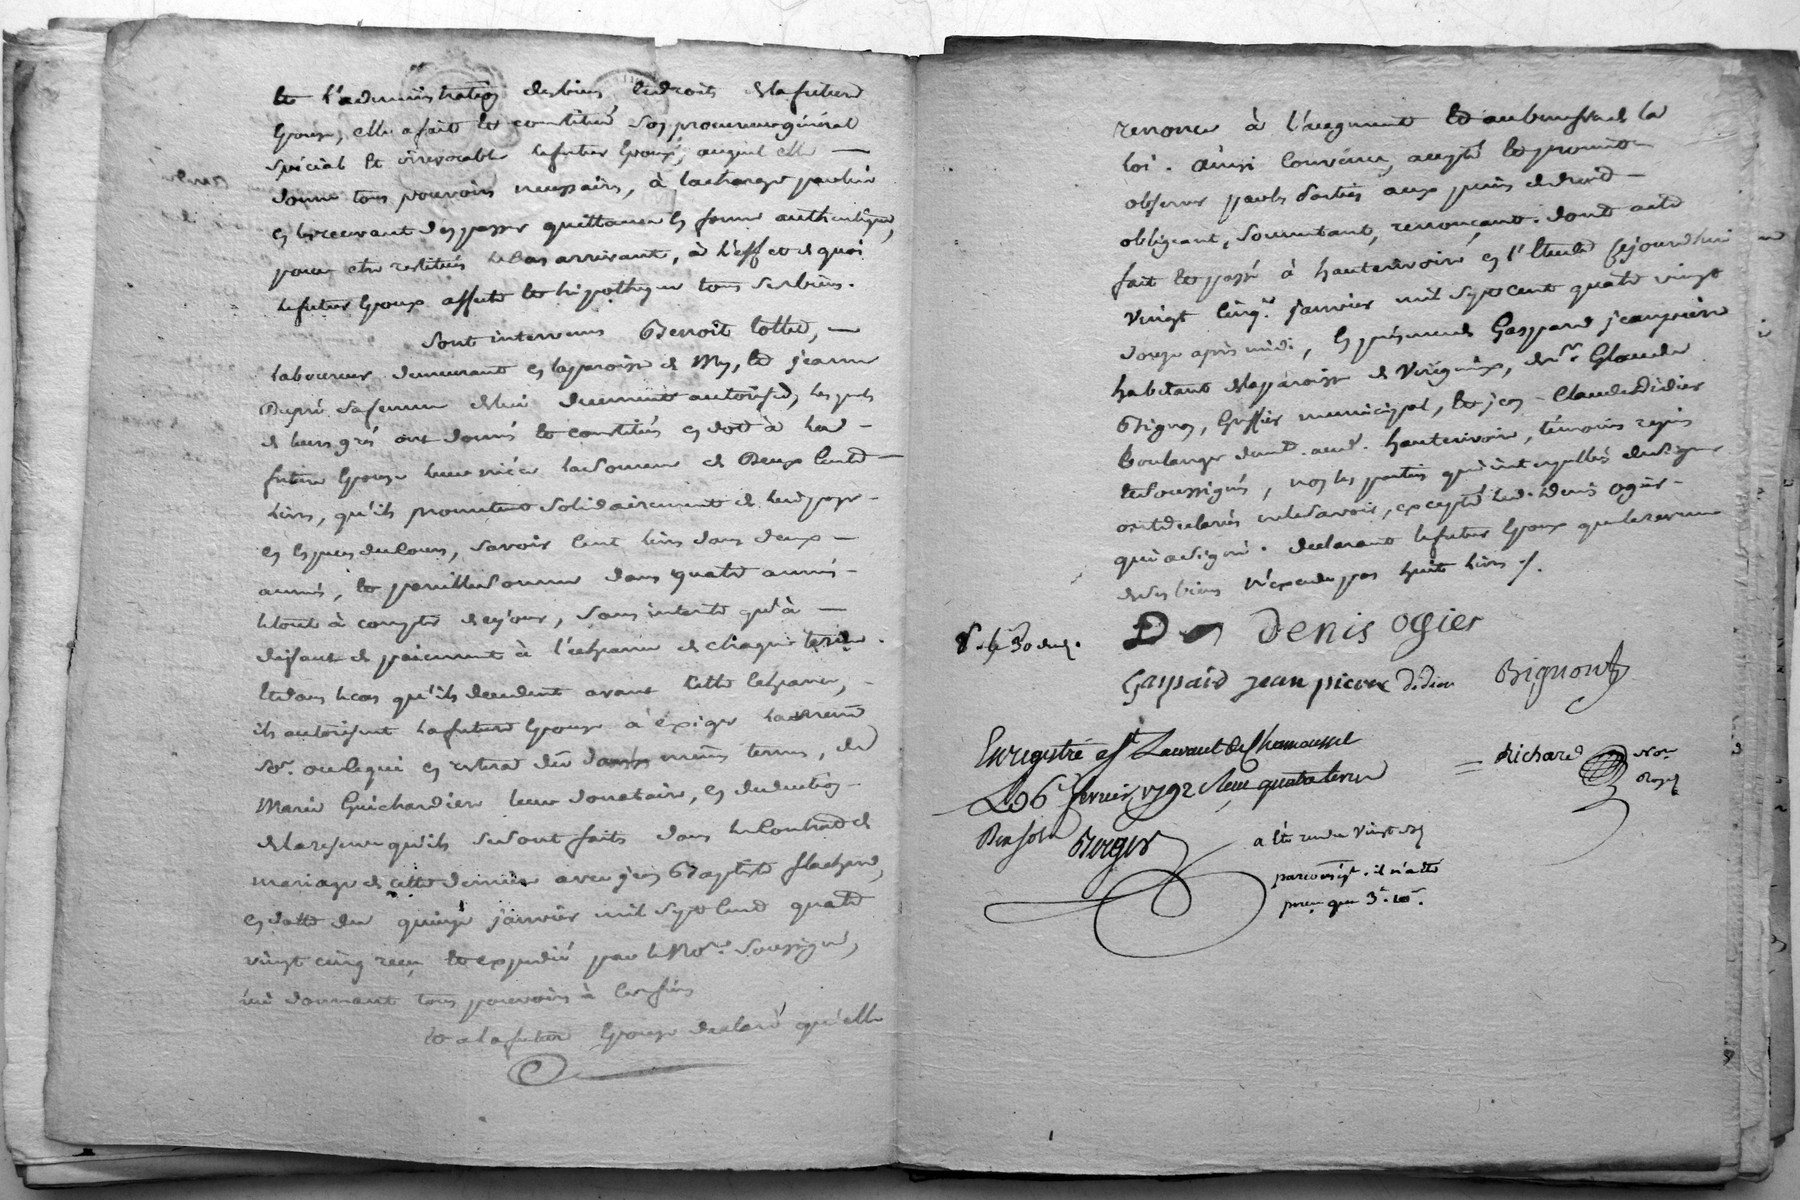 et l'administration des biens et droits de la future
épouse, elle a fait et constitué son procureur général
spécial et irrevocable le futur époux, auquel elle —
donne tous pouvoirs necessaires, à la charge par lui
en les recevant d'en passer quittance en forme authentique,
pour etre restitués le cas arrivant, à l'effet de quoi
le futur époux affecte et hipotheque tous ses biens.
Sont intervenus Benoit Cottet, —
laboureur demeurant en la paroisse de Mys, et jeanne
Dupré sa femme de lui duement autorisée, lesquels
de leurs grés ont donné et constitué en dot à lad. —
future épouse leur niéce la somme de Deux Cent —
livres, qu'ils promettent solidairement de lui payer —
en especes de cours, savoir cent livres dans deux —
années, et pareille somme dans quatre années —
le tout à compter de ce jour, sans interet qu'à —
defaut de paiement à l'echeance de chaque terme.
et dans le cas qu'ils decedent avant cette echeance, —
ils autorisent la future épouse à exiger la
en mêmes termes, de
Marie Guichardier leur donataire, en deduction —
de la reserve qu'ils se sont faits dans le Contrat de
mariage de cette derniere avec jean Baptiste flachard,
en datte du quinze janvier mil sept cent quatre
vingt cinq recu et expedié par le No.re soussigné,
lui donnant tous pouvoirs à ces fins
et a la future épouse declaré qu'elle
renonce à l'augment et au benefice de la
loi. ainsi convenu, accepté et promis
observer par les parties aux peines de droit —
obligeant, soumettant, renonçant. dont acte
fait et passé à hauterivoire en l'étude cejourd'hui
vingt cinq janvier mil sept cent quatre vingt
douze après midi, en presence de Gaspard jeanpierre
habitant de la paroisse de Virigneux, de s.r Claude
Bignon, Greffier municipal, et jean - Claude Didier
Boulanger dem.t aud. hauterivoire, témoins requis
et soussignés, non les parties qui interpellées de signer
ont declarés ne le savoir, excepté led. Denis ogier —
qui a signé. declarant le futur époux que le revenu
de ses biens n'excede pas huit livres ./.
Denis Ogier
Gaspard jean pierre didier Bignont
Enregistré a St Laurent de Chamousset
Le 6 fevrier 1792
= Richard No.re
Roger
a été rendu vingt
il n'a été
perçu que 3